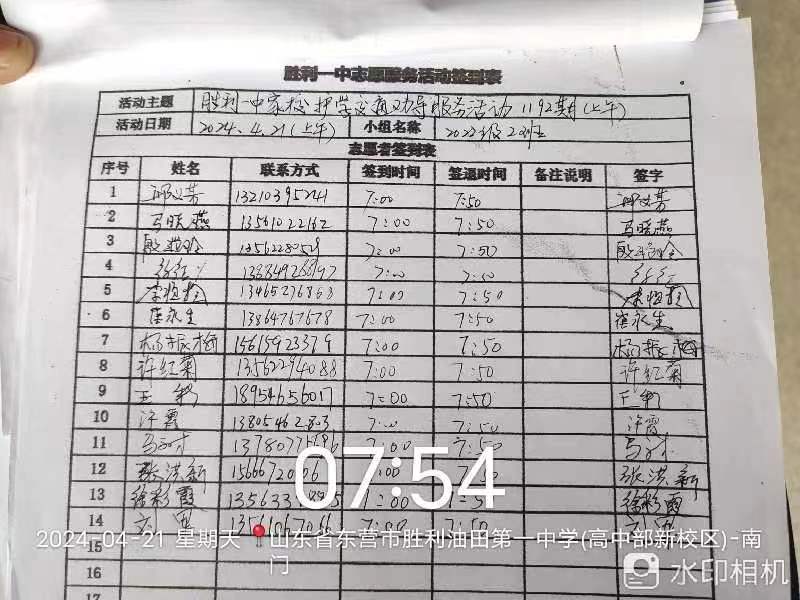 胜利一中志愿服务活动签到表
活动主题 胜利一中家校护学交通劝导服务活动 1192期(上午)
活动日期 2024.4.21(上午) 小组名称 2022级22班
志愿者签到表
序号 姓名 联系方式 签到时间 签退时间 备注说明 签字
1 13210395241 7:00 7:50
2 马晓燕 13561022162 7:00 7:50 马晓燕
3 7:00 7:50
4 7:00 7:50
5 李恒 13465276863 7:00 7:50 李恒
6 崔永生 13864767678 7:00 7:50 崔永生
7 杨振梅 15615923379 7:00 7:50 杨振梅
8 许红菊 13562294088 7:00 7:50 许红菊
9 王 18954656017 7:00 7:50 王
10 许霄 13805462803 7:00 7:50 许霄
11 马 7:00 7:50 马
12 张洪新 张洪新
13 徐彩霞 徐彩霞
14 刘 7:00 7:50 刘
07:54
2024-04-21 星期天 山东省东营市胜利油田第一中学(高中部新校区)-南
门
15
16
17
水印相机